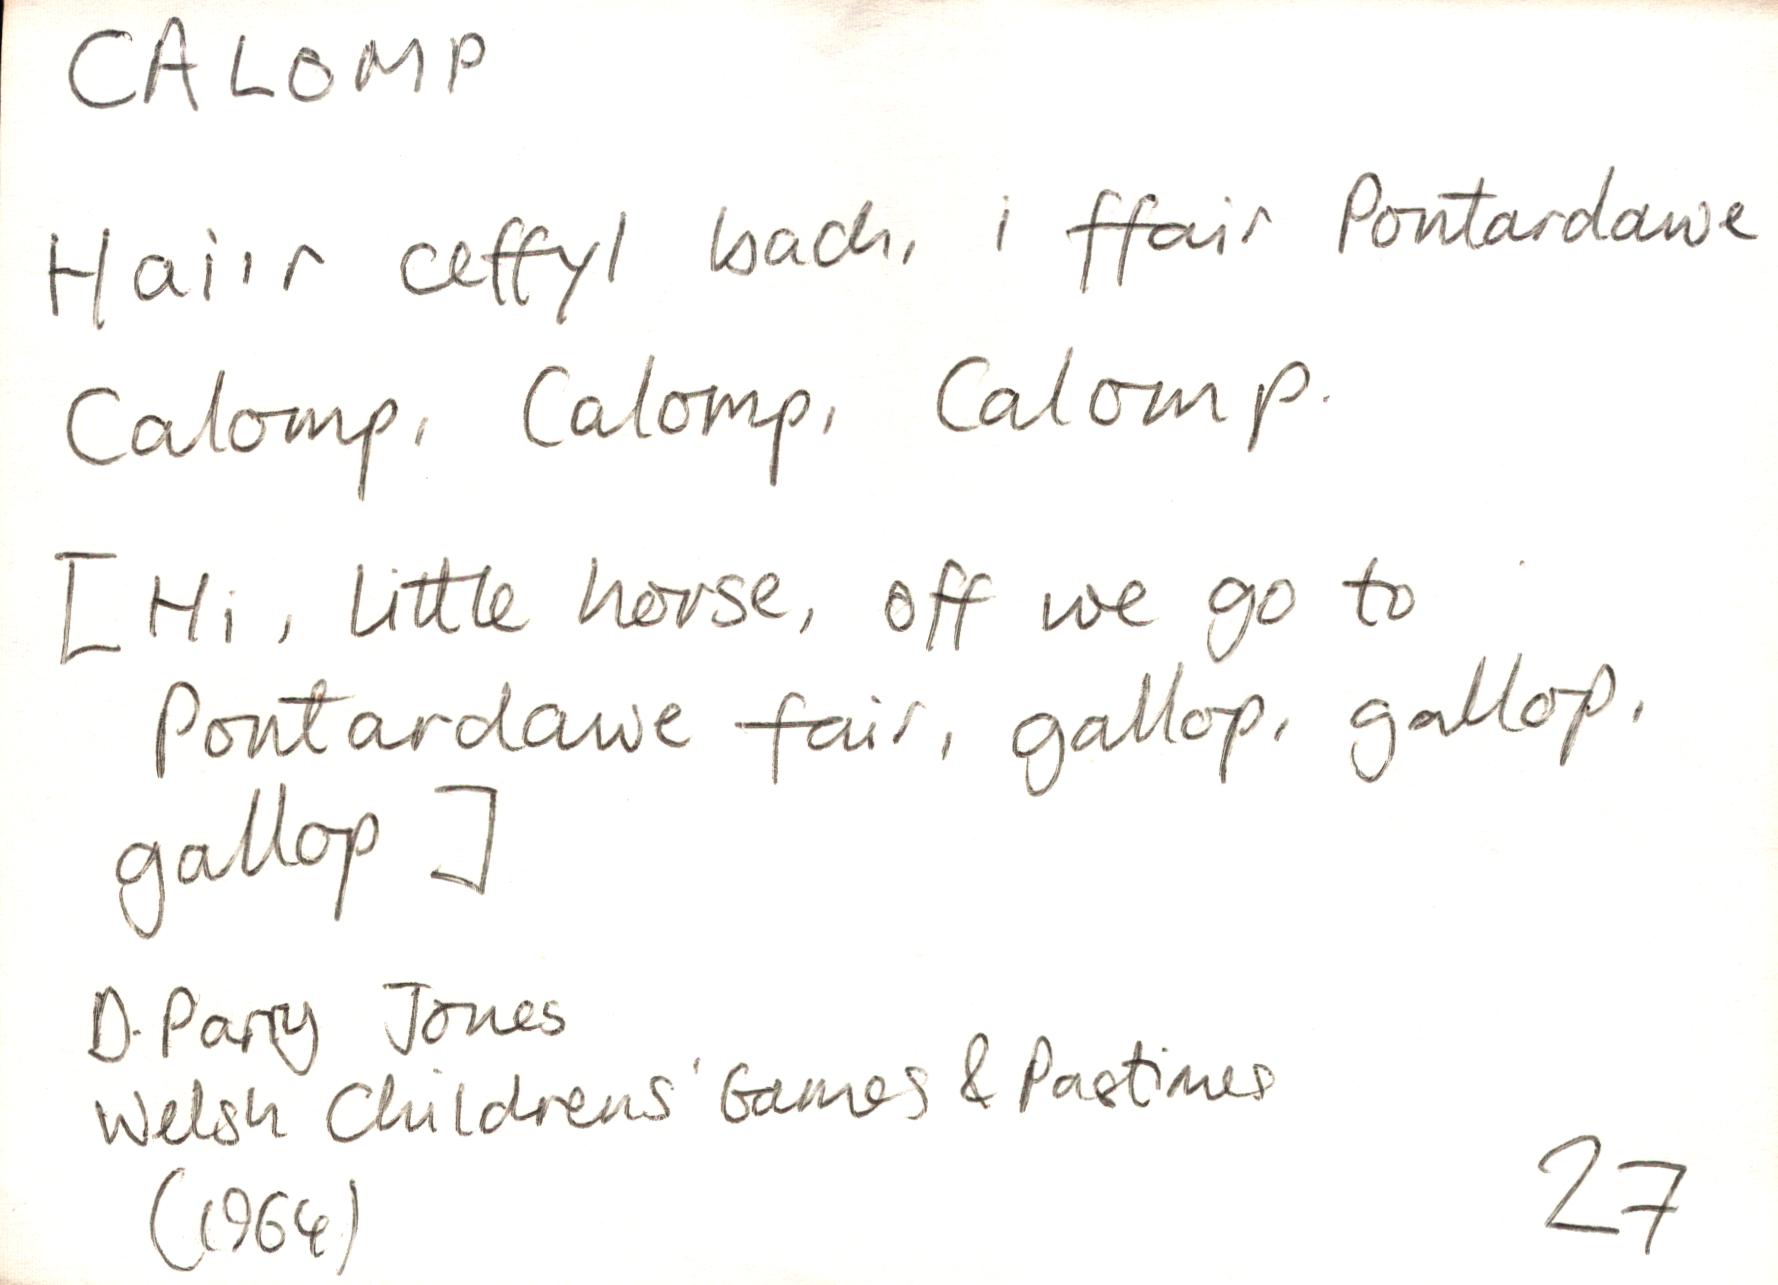 CALOMP
Hai'r ceffyl bach, i ffair Pontardawe
Calomp, Calomp, Calomp.
[Hi, little horse, off we go to
Pontardawe fair, gallop, gallop,
gallop]
D. Parry Jones
Welsh Childrens' Games & Pastimes
(1964)
27